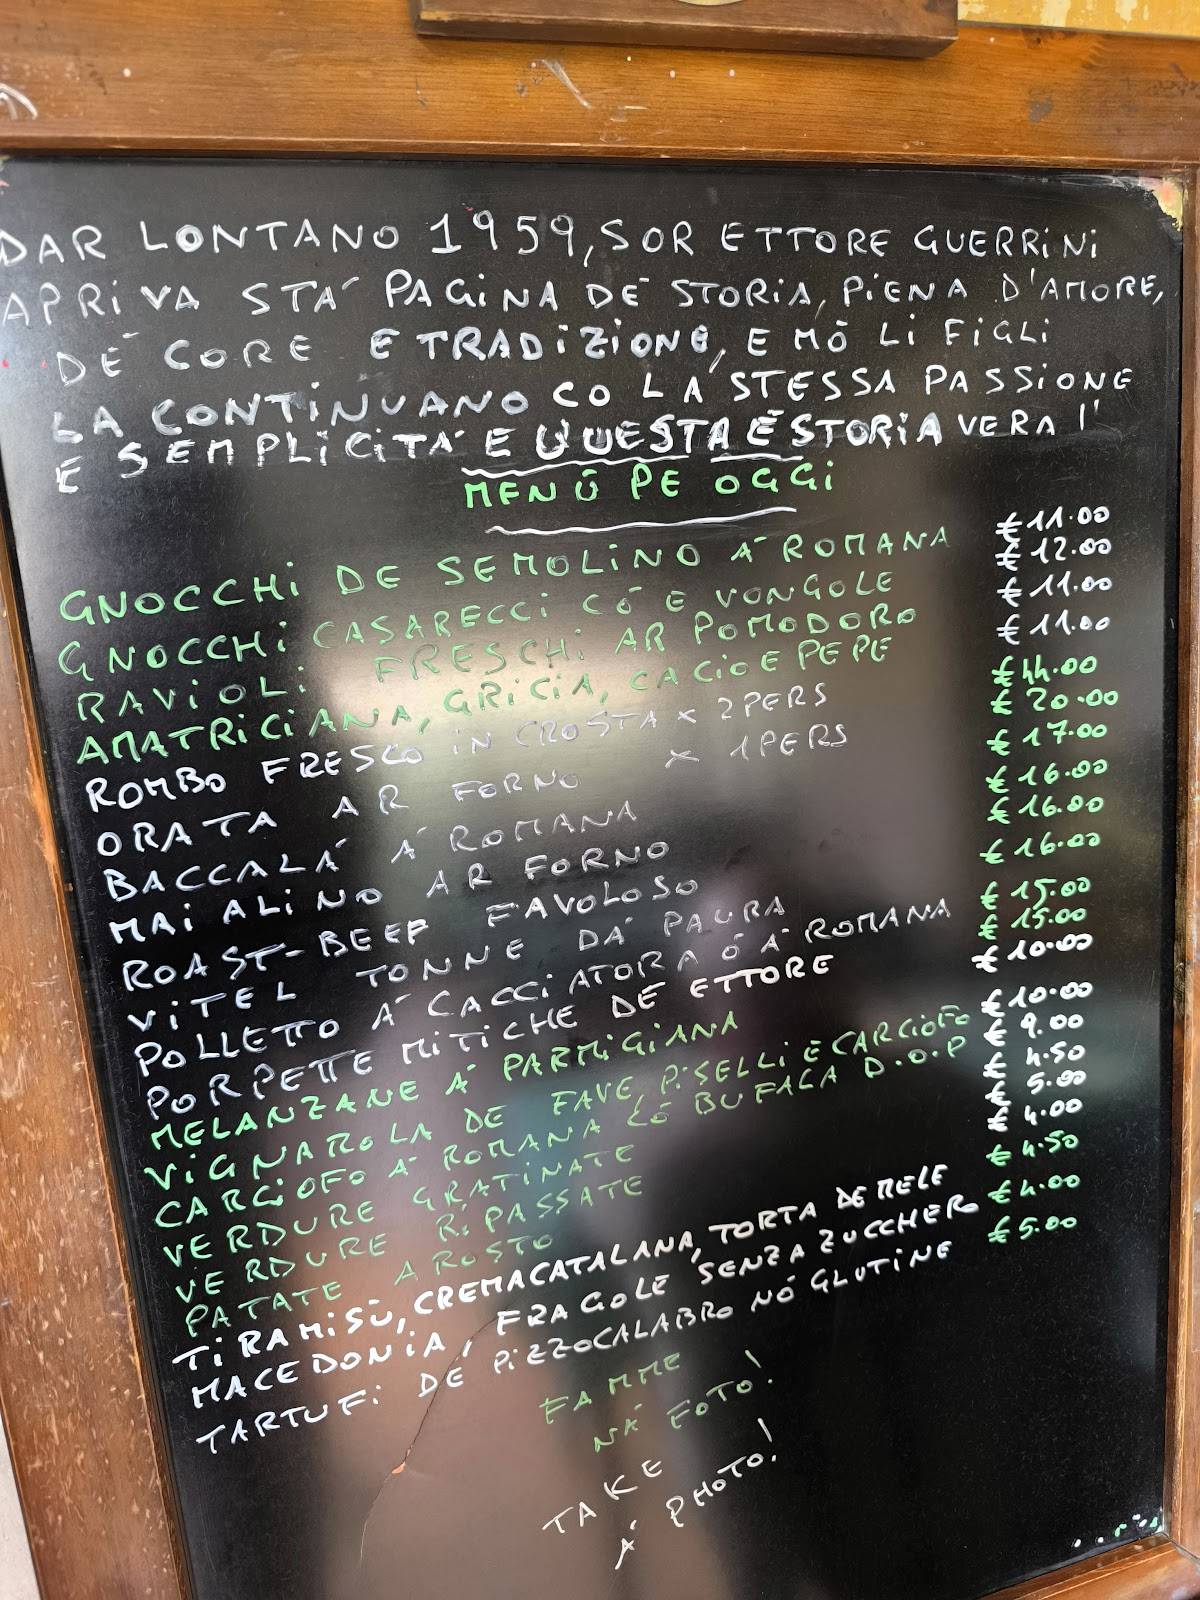 DAR LONTANO 1959, SOR ETTORE GUERRINI
APRIVA STA' PAGINA DE STORIA, PIENA D'AMORE,
DE' CORE E TRADIZIONE, E MÒ LI FIGLI
LA CONTINUANO CO LA STESSA PASSIONE
E SEMPLICITA' E QUESTA È STORIA VERA!
MENÙ PE OGGI
GNOCCHI DE SEMOLINO A' ROMANA €11.00
GNOCCHI CASARECCI CÓ E VONGOLE €12.00
RAVIOLI FRESCHI AR POMODORO €11.00
AMATRICIANA, GRICIA, CACIO E PEPE €11.00
ROMBO FRESCO IN CROSTA x 2PERS €44.00
ORATA AR FORNO x 1PERS €20.00
BACCALA' A' ROMANA €17.00
MAIALINO AR FORNO €16.00
ROAST-BEEF FAVOLOSO €16.00
VITEL TONNE DA' PAURA €16.00
POLLETTO A' CACCIATORA Ó A' ROMANA €15.00
PORPETTE MITICHE DE ETTORE €15.00
MELANZANE A' PARMIGIANA €10.00
VIGNAROLA DE FAVE, PISELLI E CARCIOFO €10.00
CARCIOFO A' ROMANA CÓ BUFALA D.O.P €9.00
VERDURE GRATINATE €4.50
VERDURE RIPASSATE €5.00
PATATE AROSTO €4.00
TIRAMISÙ, CREMACATALANA, TORTA DE MELE €4.50
MACEDONIA, FRAGOLE SENZA ZUCCHERO €4.00
TARTUFI DE PIZZOCALABRO NÓ GLUTINE €5.00
FAMME
NA' FOTO!
TAKE
A' PHOTO!